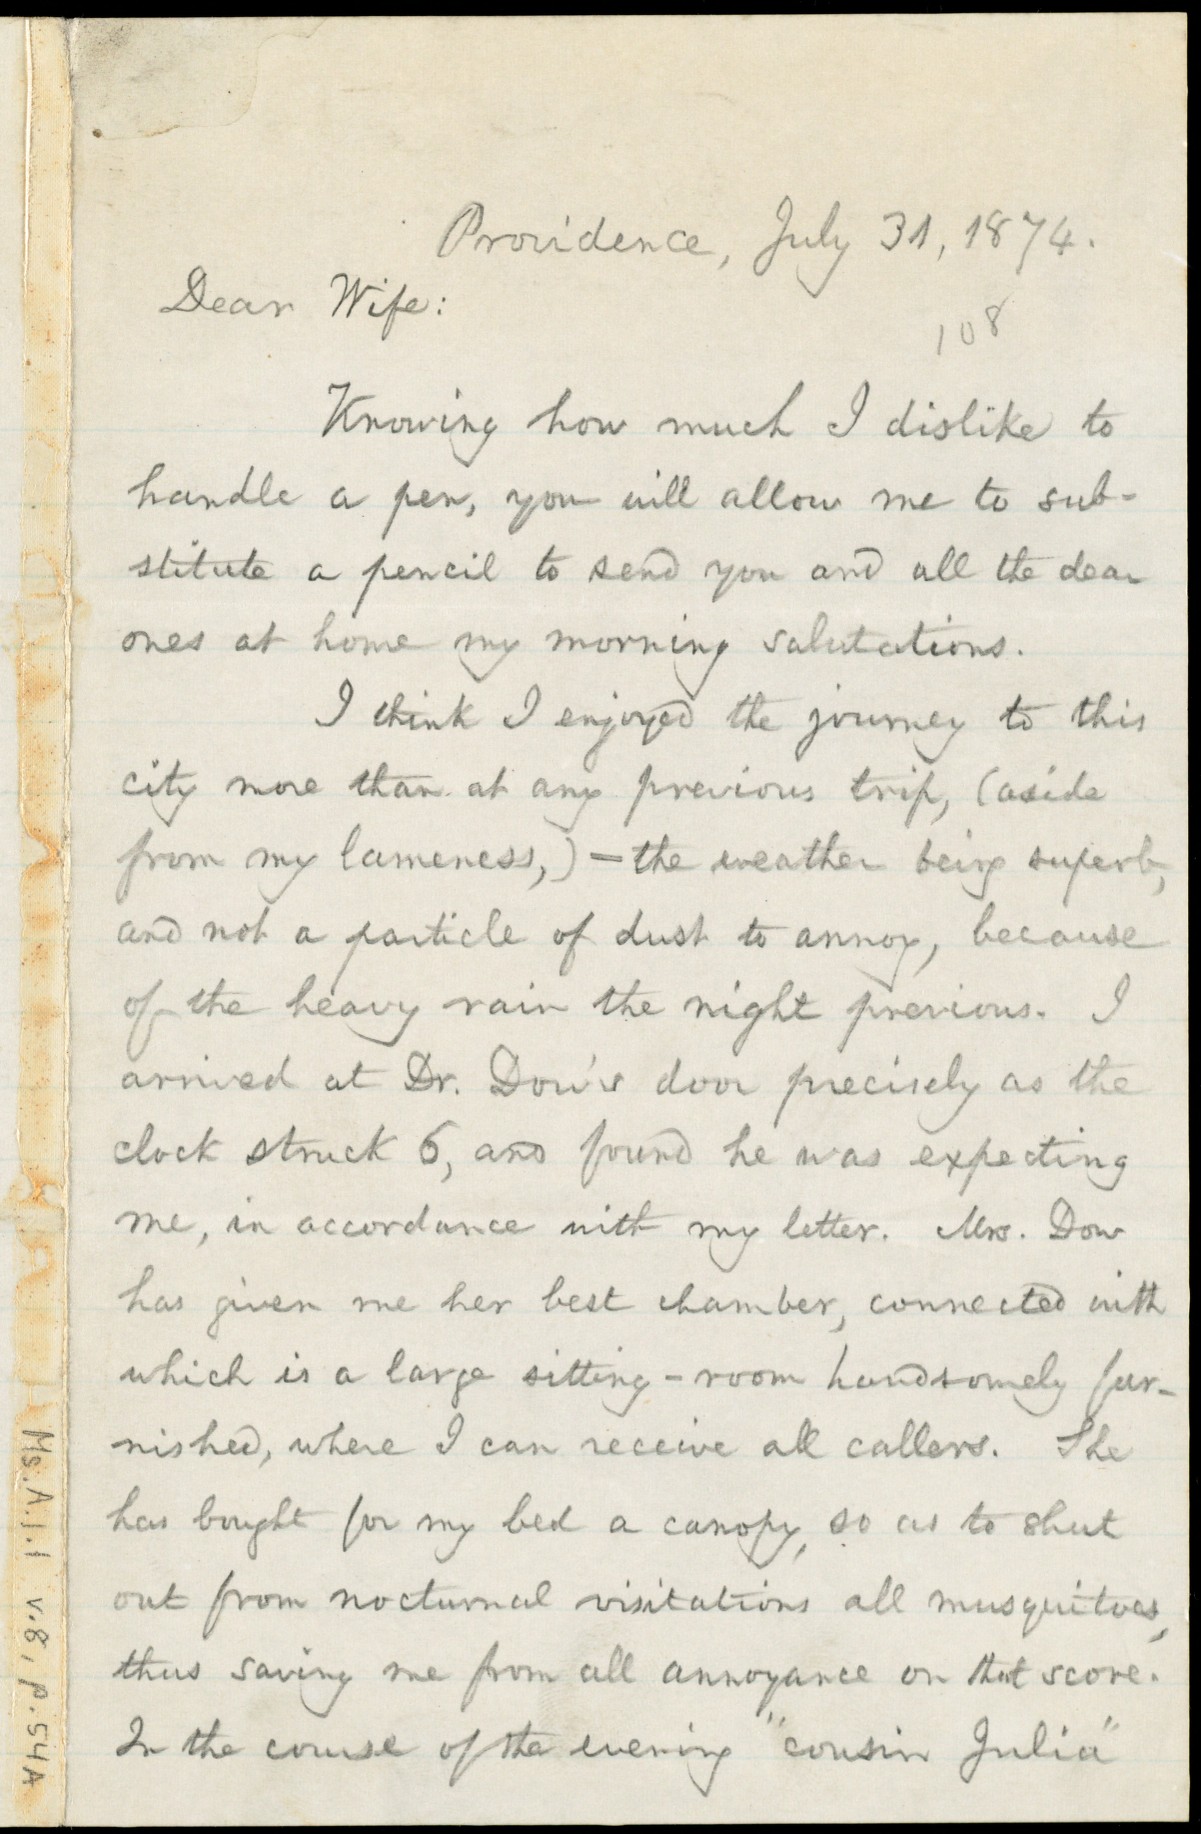 Providence, July 31, 1874.
Dear Wife:
108
Knowing how much I dislike to
handle a pen, you will allow me to sub-
stitute a pencil to send you and all the dear
ones at home my morning salutations.
I think I enjoyed the journey to this
city more than at any previous trip, (aside
from my lameness,) — the weather being superb,
and not a particle of dust to annoy, because
of the heavy rain the night previous. I
arrived at Dr. Dow's door precisely as the
clock struck 6, and found he was expecting
me, in accordance with my letter. Mrs. Dow
has given me her best chamber, connected with
which is a large sitting-room handsomely fur-
nished, where I can receive all callers. She
has bought for my bed a canopy, so as to shut
out from nocturnal visitations all musquitoes,
thus saving me from all annoyance on that score.
In the course of the evening "cousin Julia"
Ms. A. 1. 1 v. 8, p. 54A